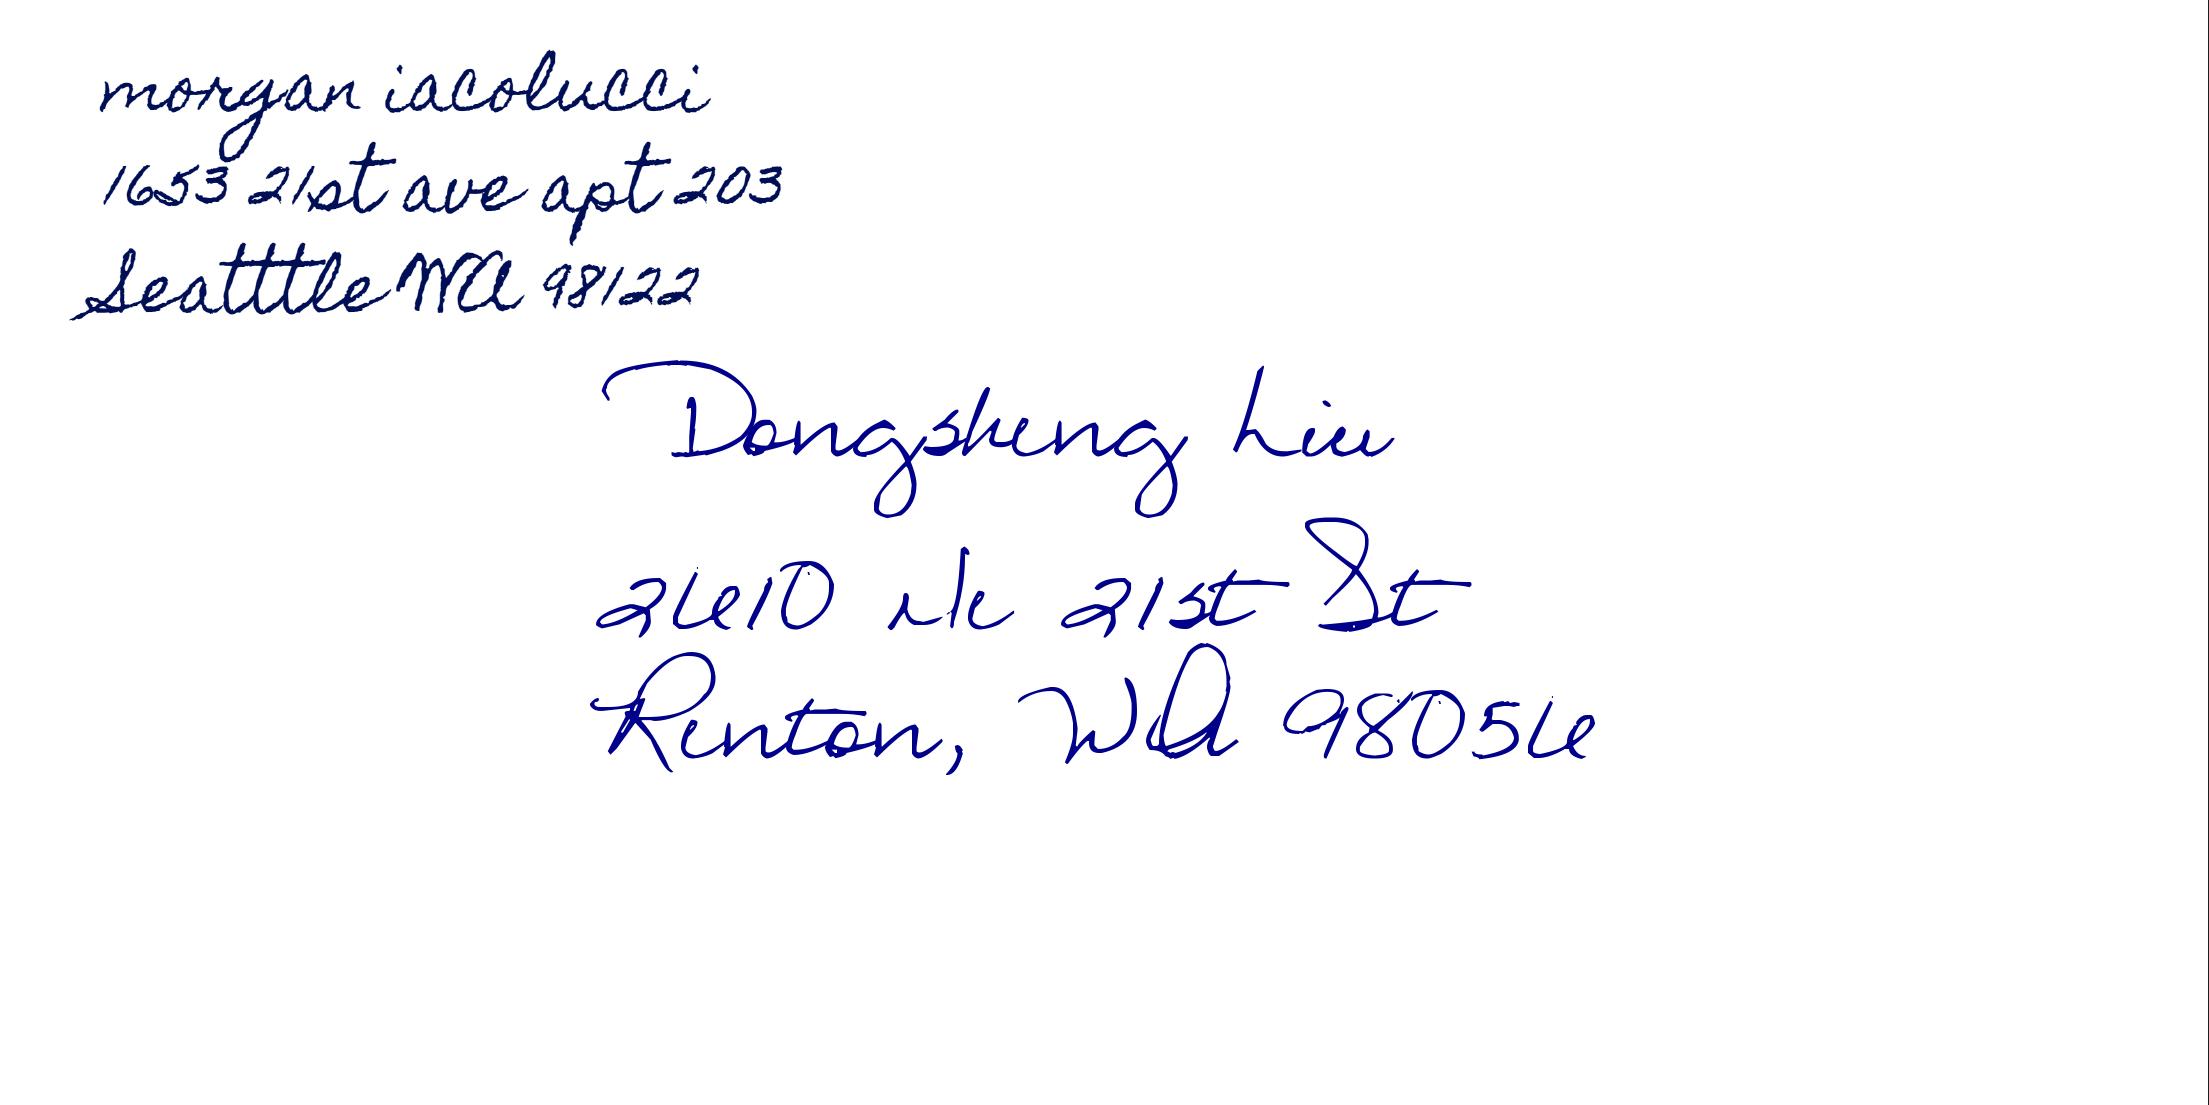 morgan iacolucci
1653 21st ave apt 203
Seatttle WA 98122
Dongsheng Liu
2610 Ne 21st St
Renton, WA 98056